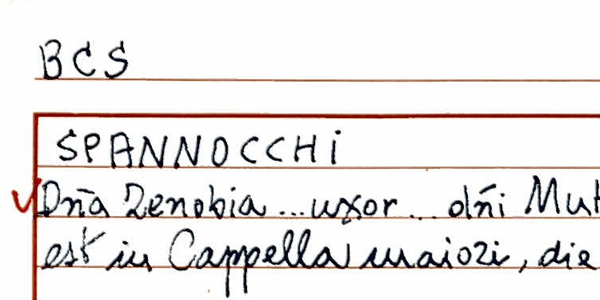 BCS
SPANNOCCHI
Dña Zenobia ... uxor ... dñi
est in Cappella maiori, die